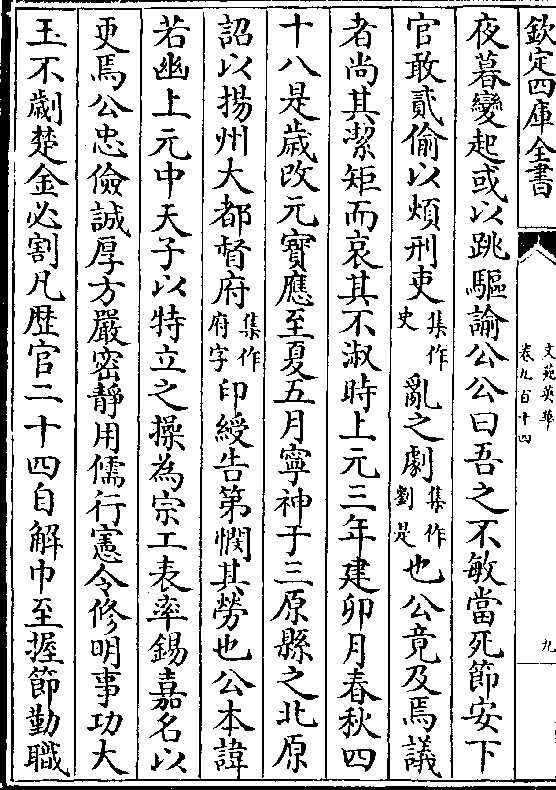 欽定四庫全書
文苑英華
卷九百十四
九
夜暮變起或以跳驅諭公公曰吾之不敏當死節安下
官敢貳偷以煩刑吏集作史亂之劇集作劉是也公竟及焉議
者尚其潔矩而哀其不淑時上元三年建卯月春秋四
十八是歲改元寶應至夏五月寧神于三原縣之北原
詔以揚州大都督府集作府字印綬告第憫其勞也公本諱
若幽上元中天子以特立之操為宗工表率錫嘉名以
更焉公忠儉誠厚方嚴密靜用儒行憲令修明事功大
玉不劌楚金必割凡歷官二十四自解巾至握節勤職